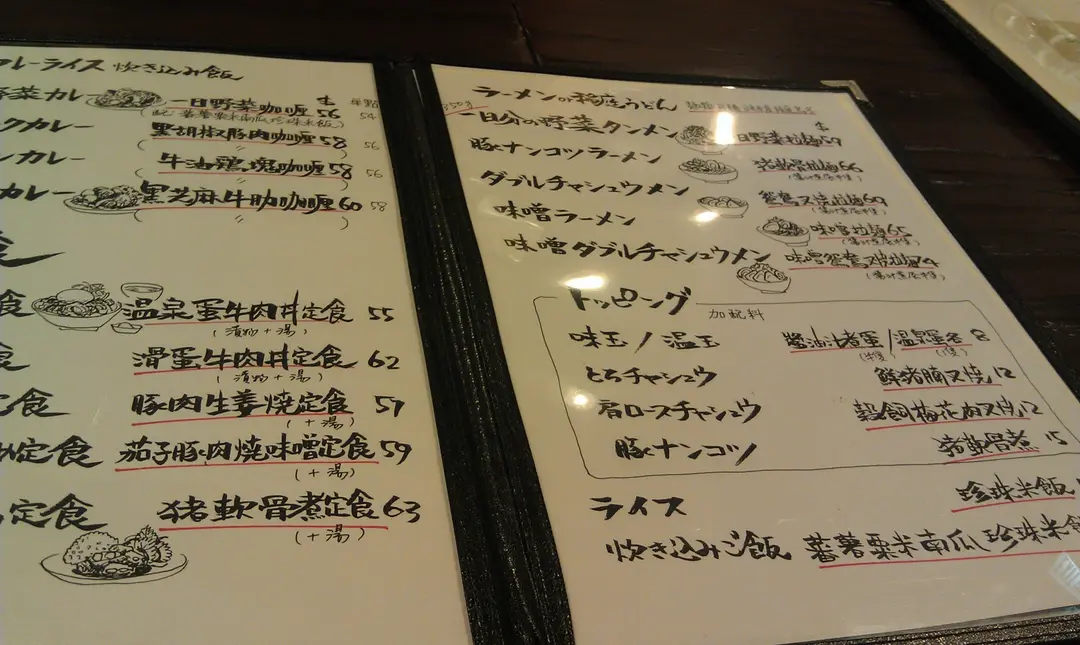 カレーライス 炊き込み飯
野菜カレー 一日野菜咖喱 56 54
(配 蕃薯粟米南瓜珍珠米飯)
クカレー 黒胡椒豚肉咖喱 58 56
ンカレー 牛油鶏塊咖喱 58 56
カレー 黒芝麻牛肋咖喱 60 58
食
食 温泉蛋牛肉丼定食 55
(漬物+湯)
食 滑蛋牛肉丼定食 62
(漬物+湯)
定食 豚肉生姜焼定食 57
(+湯)
定食 茄子豚肉焼味噌定食 59
(+湯)
定食 猪軟骨煮定食 63
(+湯)
ラーメン or 稲庭うどん
350g
一日分の野菜タンメン 一日野菜拉麺 59
豚ナンコツラーメン 猪軟骨拉麺 66
ダブルチャシュウメン 鴛鴦叉焼拉麺 69
味噌ラーメン 味噌拉麺 65
味噌ダブルチャシュウメン 味噌鴛鴦叉焼拉麺 74
トッピング 加配料
味玉 / 温玉 醤油煮蛋 / 温泉蛋 各 8
とろチャシュウ 鮮猪腩叉焼 12
肩ロースチャシュウ 穀飼梅花肉叉焼 12
豚ナンコツ 猪軟骨煮 15
ライス 珍珠米飯
炊き込みご飯 蕃薯粟米南瓜珍珠米飯